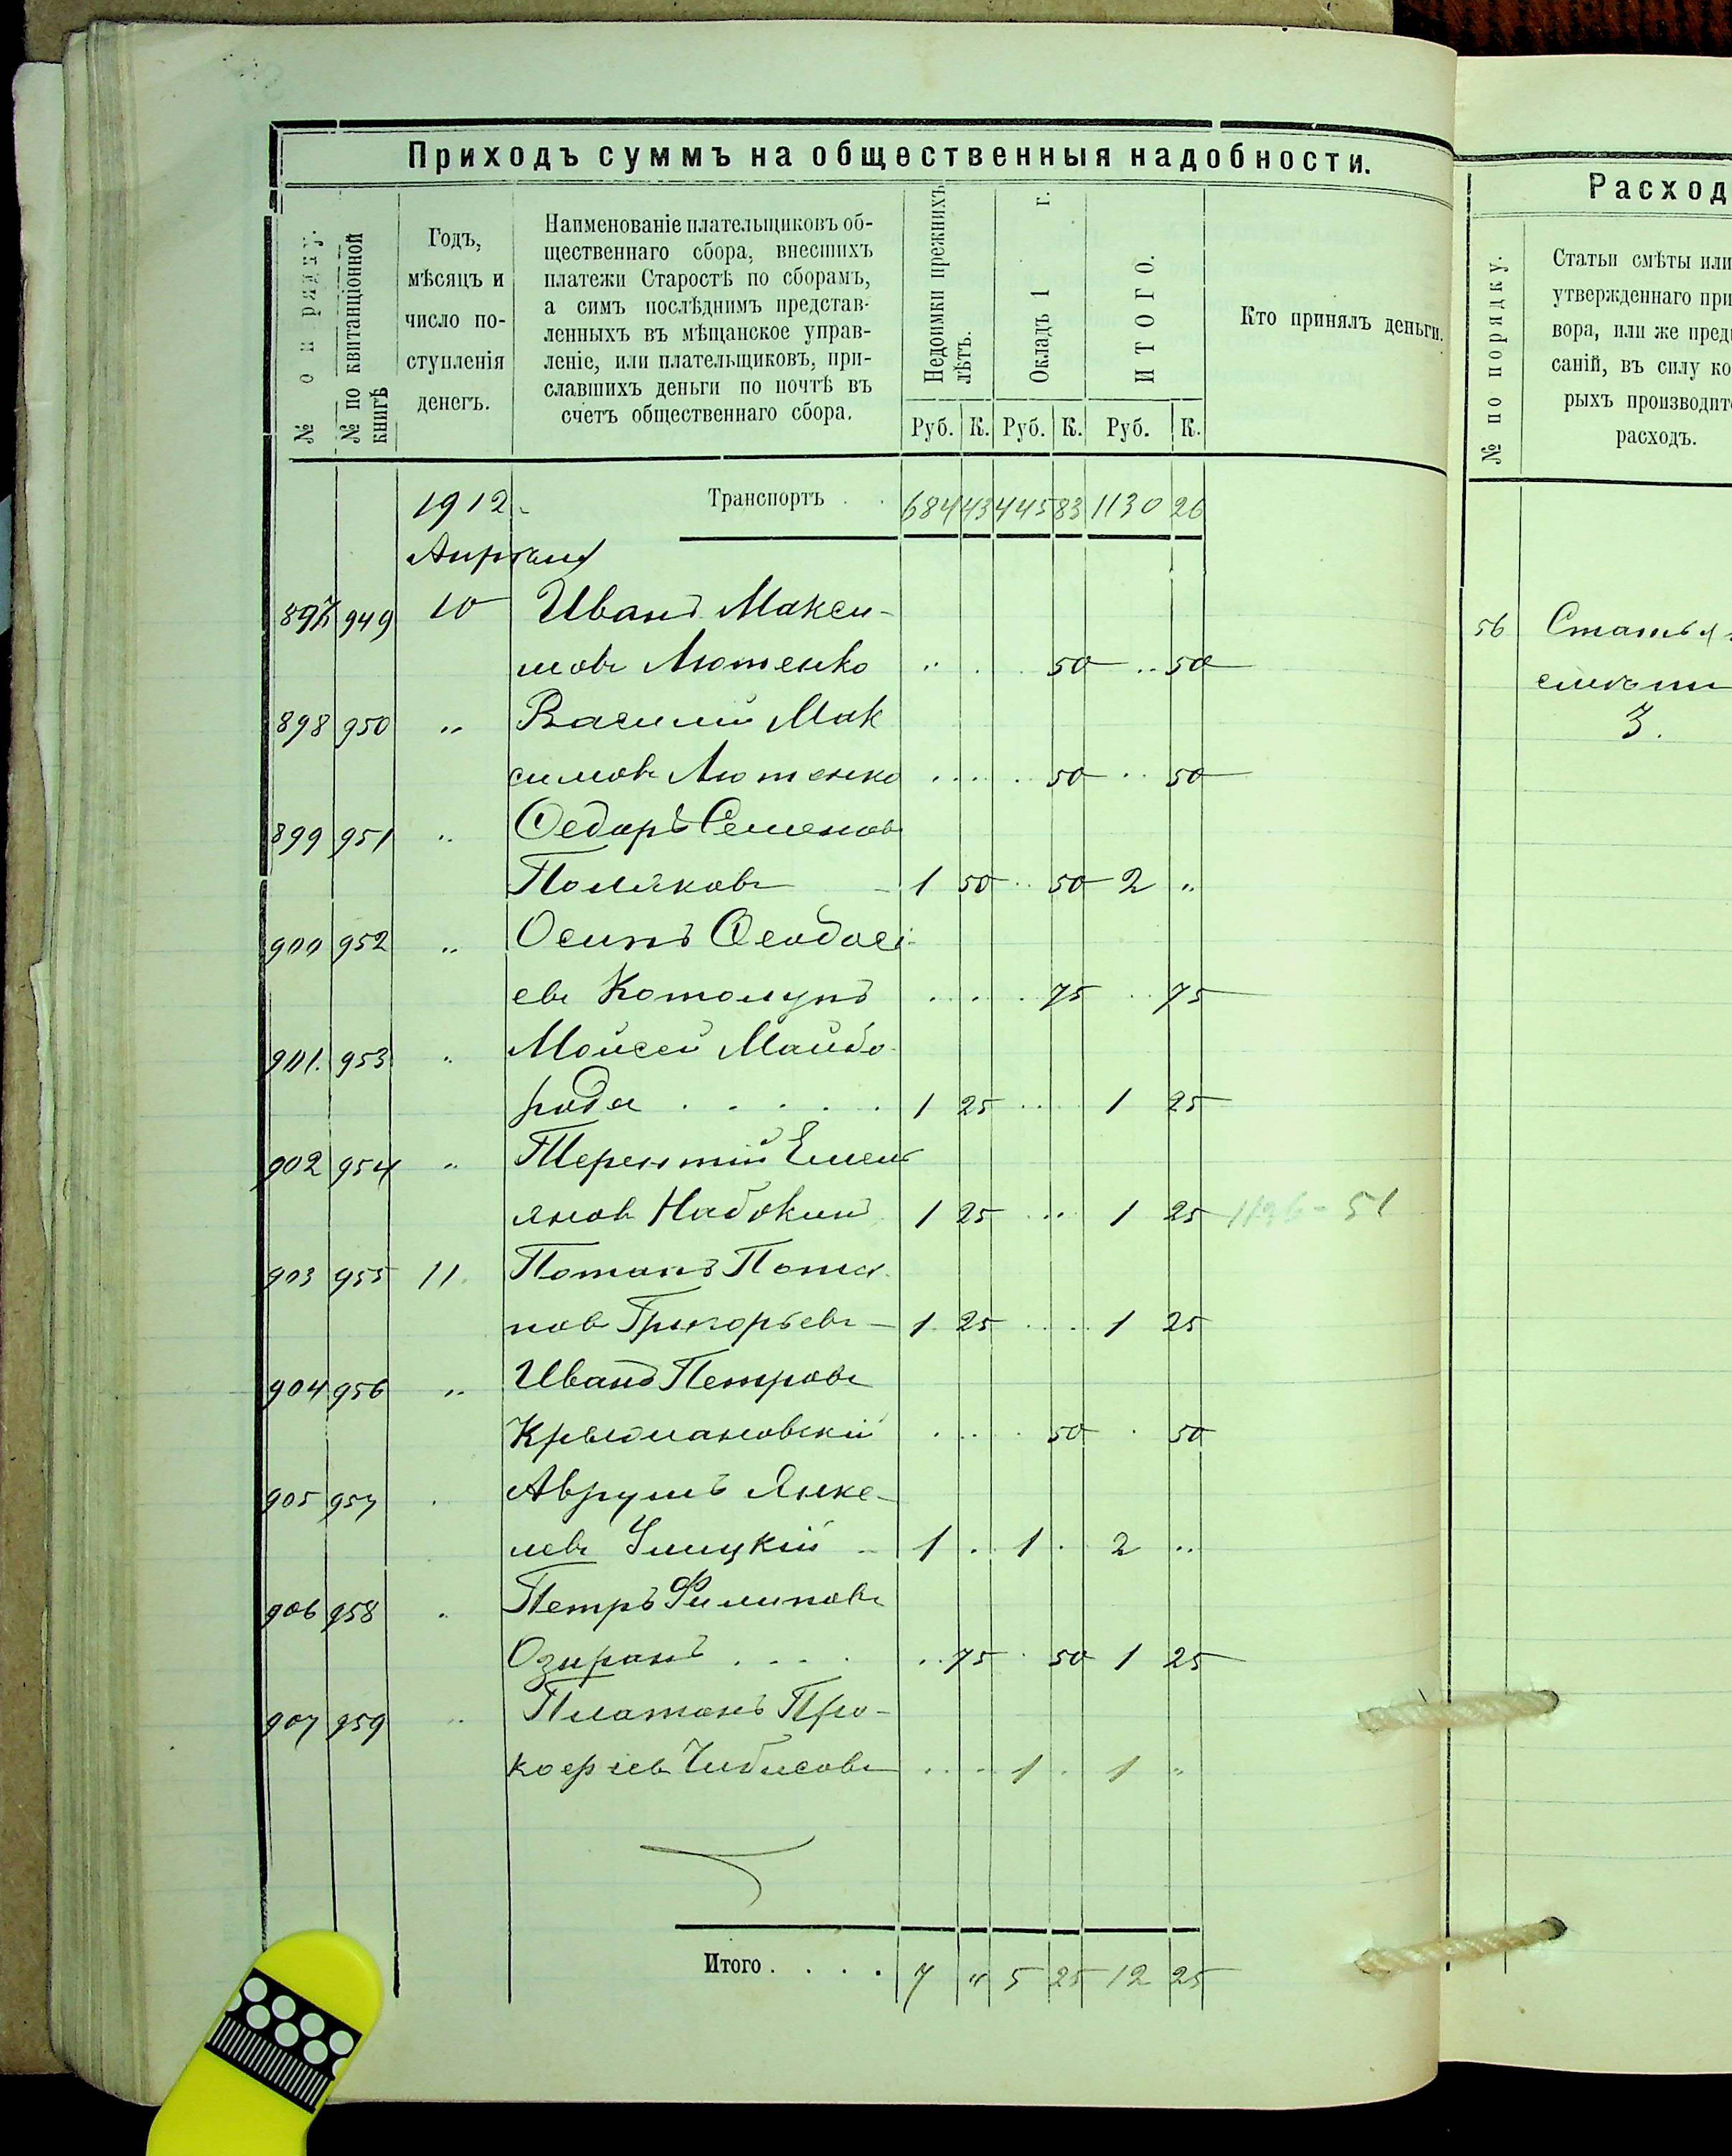 Приходъ суммъ на общественныя надобности.
№ по ряду.
№ по квитанціонной книгѣ
Годъ, мѣсяцъ и число поступленія денегъ.
Наименованіе плательщиковъ об-
щественнаго сбора, внесшихъ
платежи Старостѣ по сборамъ,
а симъ послѣднимъ представ-
ленныхъ въ мѣщанское управ-
леніе, или плательщиковъ, при-
славшихъ деньги по почтѣ въ
счетъ общественнаго сбора.
Недоимки прежнихъ лѣтъ.
Окладъ 1 г.
ИТОГО.
Кто принялъ деньги.
Руб. К. Руб. К. Руб. К.
1912. Транспортъ . . 684 43 445 83 1130 26
Апрѣля
897 949 10 Иванъ Макси-
мовъ Лютенко " . . 50 .. 50
898 950 " Василій Мак
симовъ Лютенко . . . . 50 .. 50
899 951 " Ѳедоръ Семеновъ
Поляковъ - 1 50 .. 50 2 "
900 952 " Осипъ Ѳеодосі-
евъ Котолупъ . . . . 75 .. 75
901. 953 " Мойсей Майбо-
рода . . . . . 1 25 ... 1 25
902 954 " Терентій Емель
яновъ Набокинъ 1 25 ... 1 25 1136-51
903 955 11. Потапъ Пота-
повъ Григорьевъ - 1 25 . . . 1 25
904 956 " Иванъ Петровъ
Крыжановскій . . . . 50 . 50
905 957 . Аврумъ Янке-
левъ Улицкій - 1 . 1 . 2 ..
906 958 " Петръ Филиповъ
Озиранъ . . . . .. 75 . 50 1 25
907 959 .. Платонъ Про-
кофіевъ Чибисовъ . . . - 1 . 1 "
Итого . . . . 7 " 5 25 12 25
Расход
№ по порядку.
Статьи смѣты или
утвержденнаго при
вора, или же пред
саній, въ силу ко
рыхъ производит
расходъ.
56 Статья
смѣты
3.